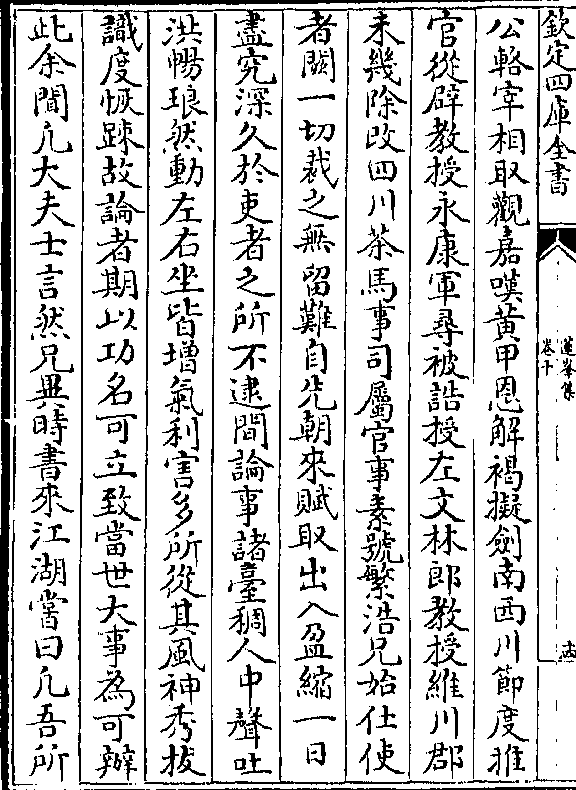 欽定四庫全書
蓮峯集
卷十
十五
公輅宰相取觀嘉嘆黄甲恩解褐擬劍南西川節度推
官從辟教授永康軍尋被誥授左文林郎教授維川郡
未幾除改四川茶馬事司屬官事素號繁浩兄始仕使
者闕一切裁之無留難自先朝來賦取出入盈縮一日
盡究深久於吏者之所不逮間論事諸臺稠人中聲吐
洪暢琅然動左右坐皆增氣利害多所從其風神秀拔
識度恢踈故論者期以功名可立致當世大事為可辦
此余間凢大夫士言然兄異時書來江湖嘗曰凢吾所